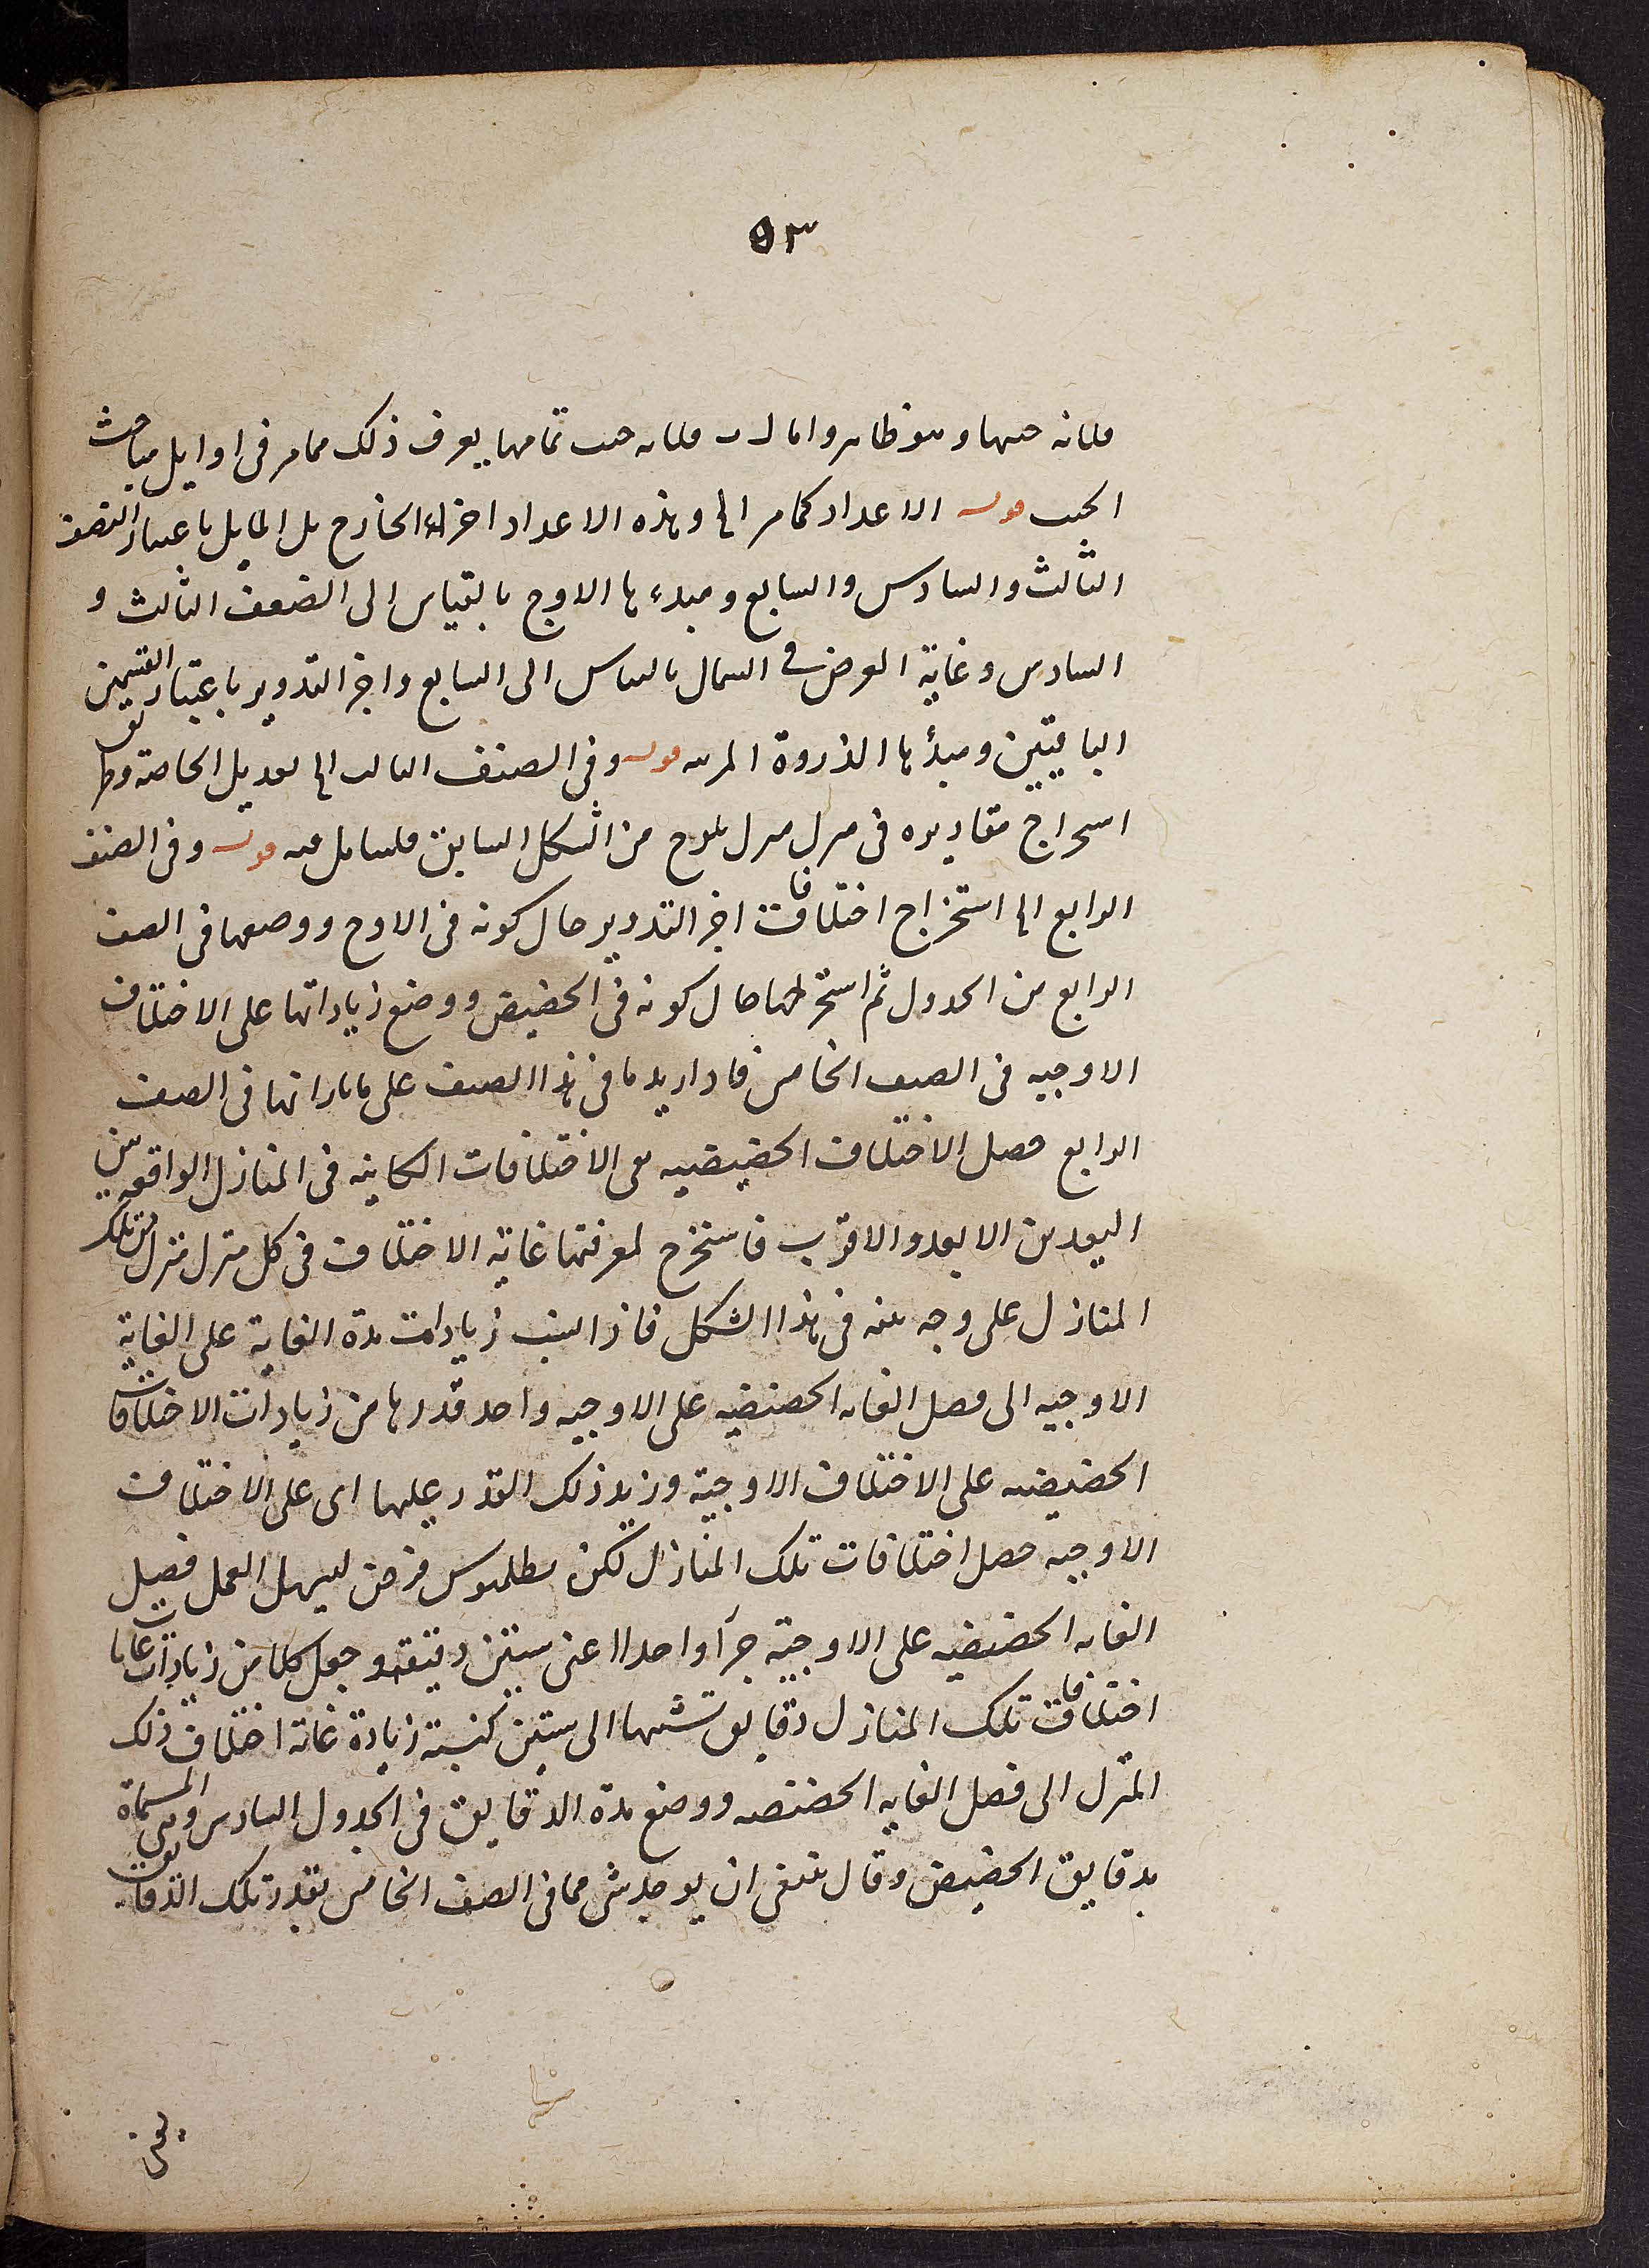 ٥٣
فلانه جيبها وهو ظاهر واما ل ب فلانه جيب تمامها يعرف ذلك مما مر في اوايل مباحث
الجيب قوله الاعداد كما مر الخ وهذه الاعداد اجزاء الخارج بل المايل باعتبار النصف
الثالث والسادس والسابع ومبدءها الاوج بالقياس الى الضعف الثالث و
السادس وغاية العرض في الشمال بالقياس الى السابع واجزا التدوير باعتبار القسمين
الباقيتين ومبدأها الذروة المرئيه قوله وفي الصنف الثالث الخ تعديل الخاصة وطريق
استخراج مقاديره في منزل منزل يلوح من الشكل السابق فليتامل فيه قوله وفي الصنف
الرابع الخ استخراج اختلافات اجزا التدوير حال كونه في الاوج ووضعها في الصف
الرابع من الجدول ثم استخرجها حال كونه في الحضيض ووضع زياداتها على الاختلاف
الاوجيه في الصف الخامس فاذا زيد ما في هذا الصف على ما بازائها في الصف
الرابع حصل الاختلاف الحضيضيه بقى الاختلافات الكاينه في المنازل الواقعه بين
البعدين الابعد والاقرب فاستخرج لمعرفتها غاية الاختلاف في كل منزل منزل من تلك
المنازل على وجه بينه في هذا الشكل فاذا نسب زيادات هذه الغاية على الغاية
الاوجيه الى فضل الغايه الحضيضيه على الاوجيه واخذ قدرها من زيادات الاختلافات
الحضيضيه على الاختلاف الاوجية وزيد ذلك القدر عليها اى على الاختلاف
الاوجيه حصل اختلافات تلك المنازل لكن بطلميوس فرض ليسهل العمل فضل
الغايه الحضيضيه على الاوجية جزأ واحدا اعنى ستين دقيقه وجعل كلا من زيادات غايات
اختلافات تلك المنازل دقايق نسبتها الى ستين كنسبة زيادة غاية اختلاف ذلك
المنزل الى فضل الغايه الحضيضيه ووضع هذه الدقايق في الجدول السادس وهي المسماة
بدقايق الحضيض وقال ينبغى ان يوخذ شئ مما في الصف الخامس بقدر تلك الدقايق